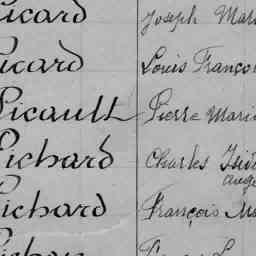 icard Joseph Mar
icard Louis Franço
icault Pierre Mari
ichard Charles Isid
Aug
ichard François Ma